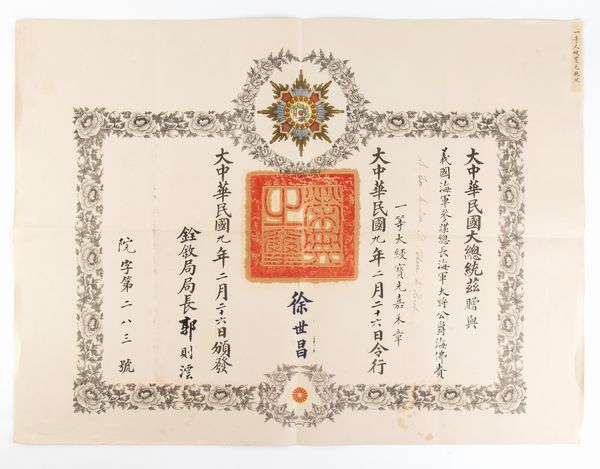 一等大綬寶光嘉禾
大中華民國大總統茲贈與
義國海軍參謀總長海軍大將公爵海佛賚
一等大綬寶光嘉禾章
大中華民國九年二月二十六日令行
榮典之璽
徐世昌
大中華民國九年二月二十六日頒發
銓敘局局長郭則澐
院字第二八三號